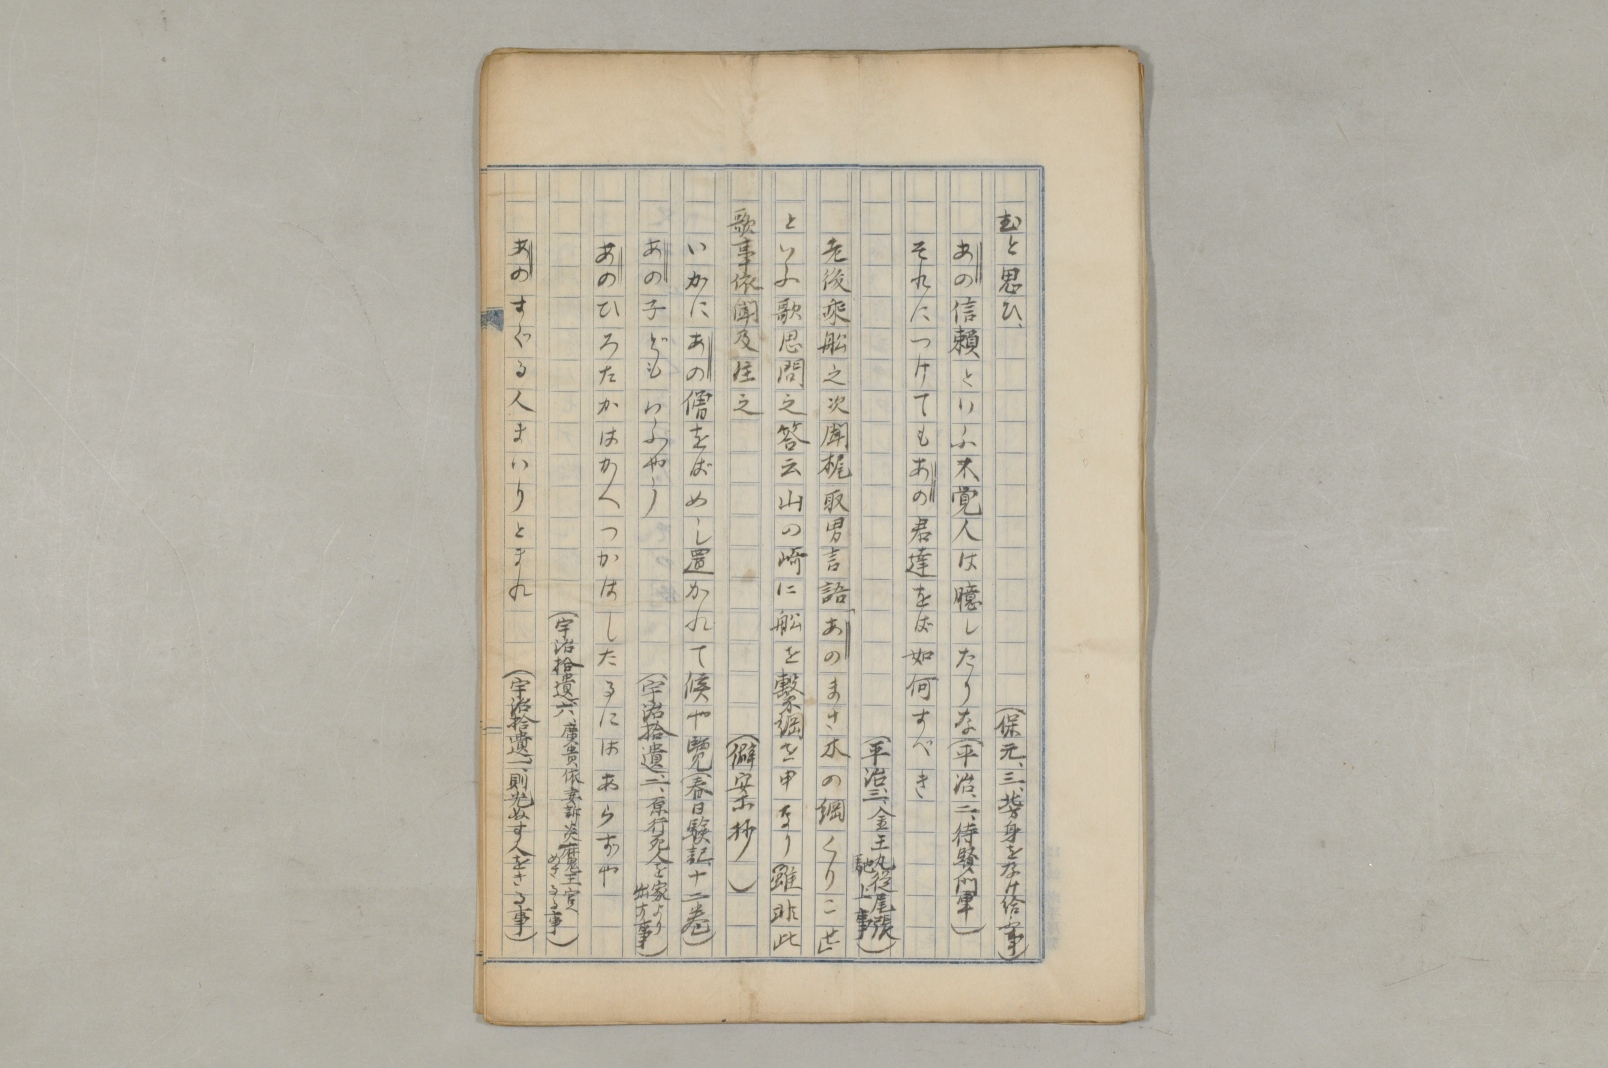 むと思ひ、(保元、三、爲義北方身をなげ給事)
あの信頼といふ不覚人は臆したりな(平治、二、待賢門軍)
それにつけてもあの君達をば如何すべき
(平治、三、金王丸従尾張馳上事)
老後乗舩之次聞梶取男言語「あのまさ木の綱くりこせ」
といふ歌思問之答云山の崎に舩を繋綱を申なり雖非此
歌事依聞及注之(僻案抄)
いかにあの僧をばめし置かれて候や覧(春日験記十二巻)
あの子どもいふやう(宇治拾遺二、原行死人を家より出す事)
あのひろたかはかへつかはしたるにはあらずや
(宇治拾遺六、廣貴依妻訴炎魔王宮めさるる事)
あのすぐる人まいりとまれ(宇治拾遺二、則光ぬす人をきる事)